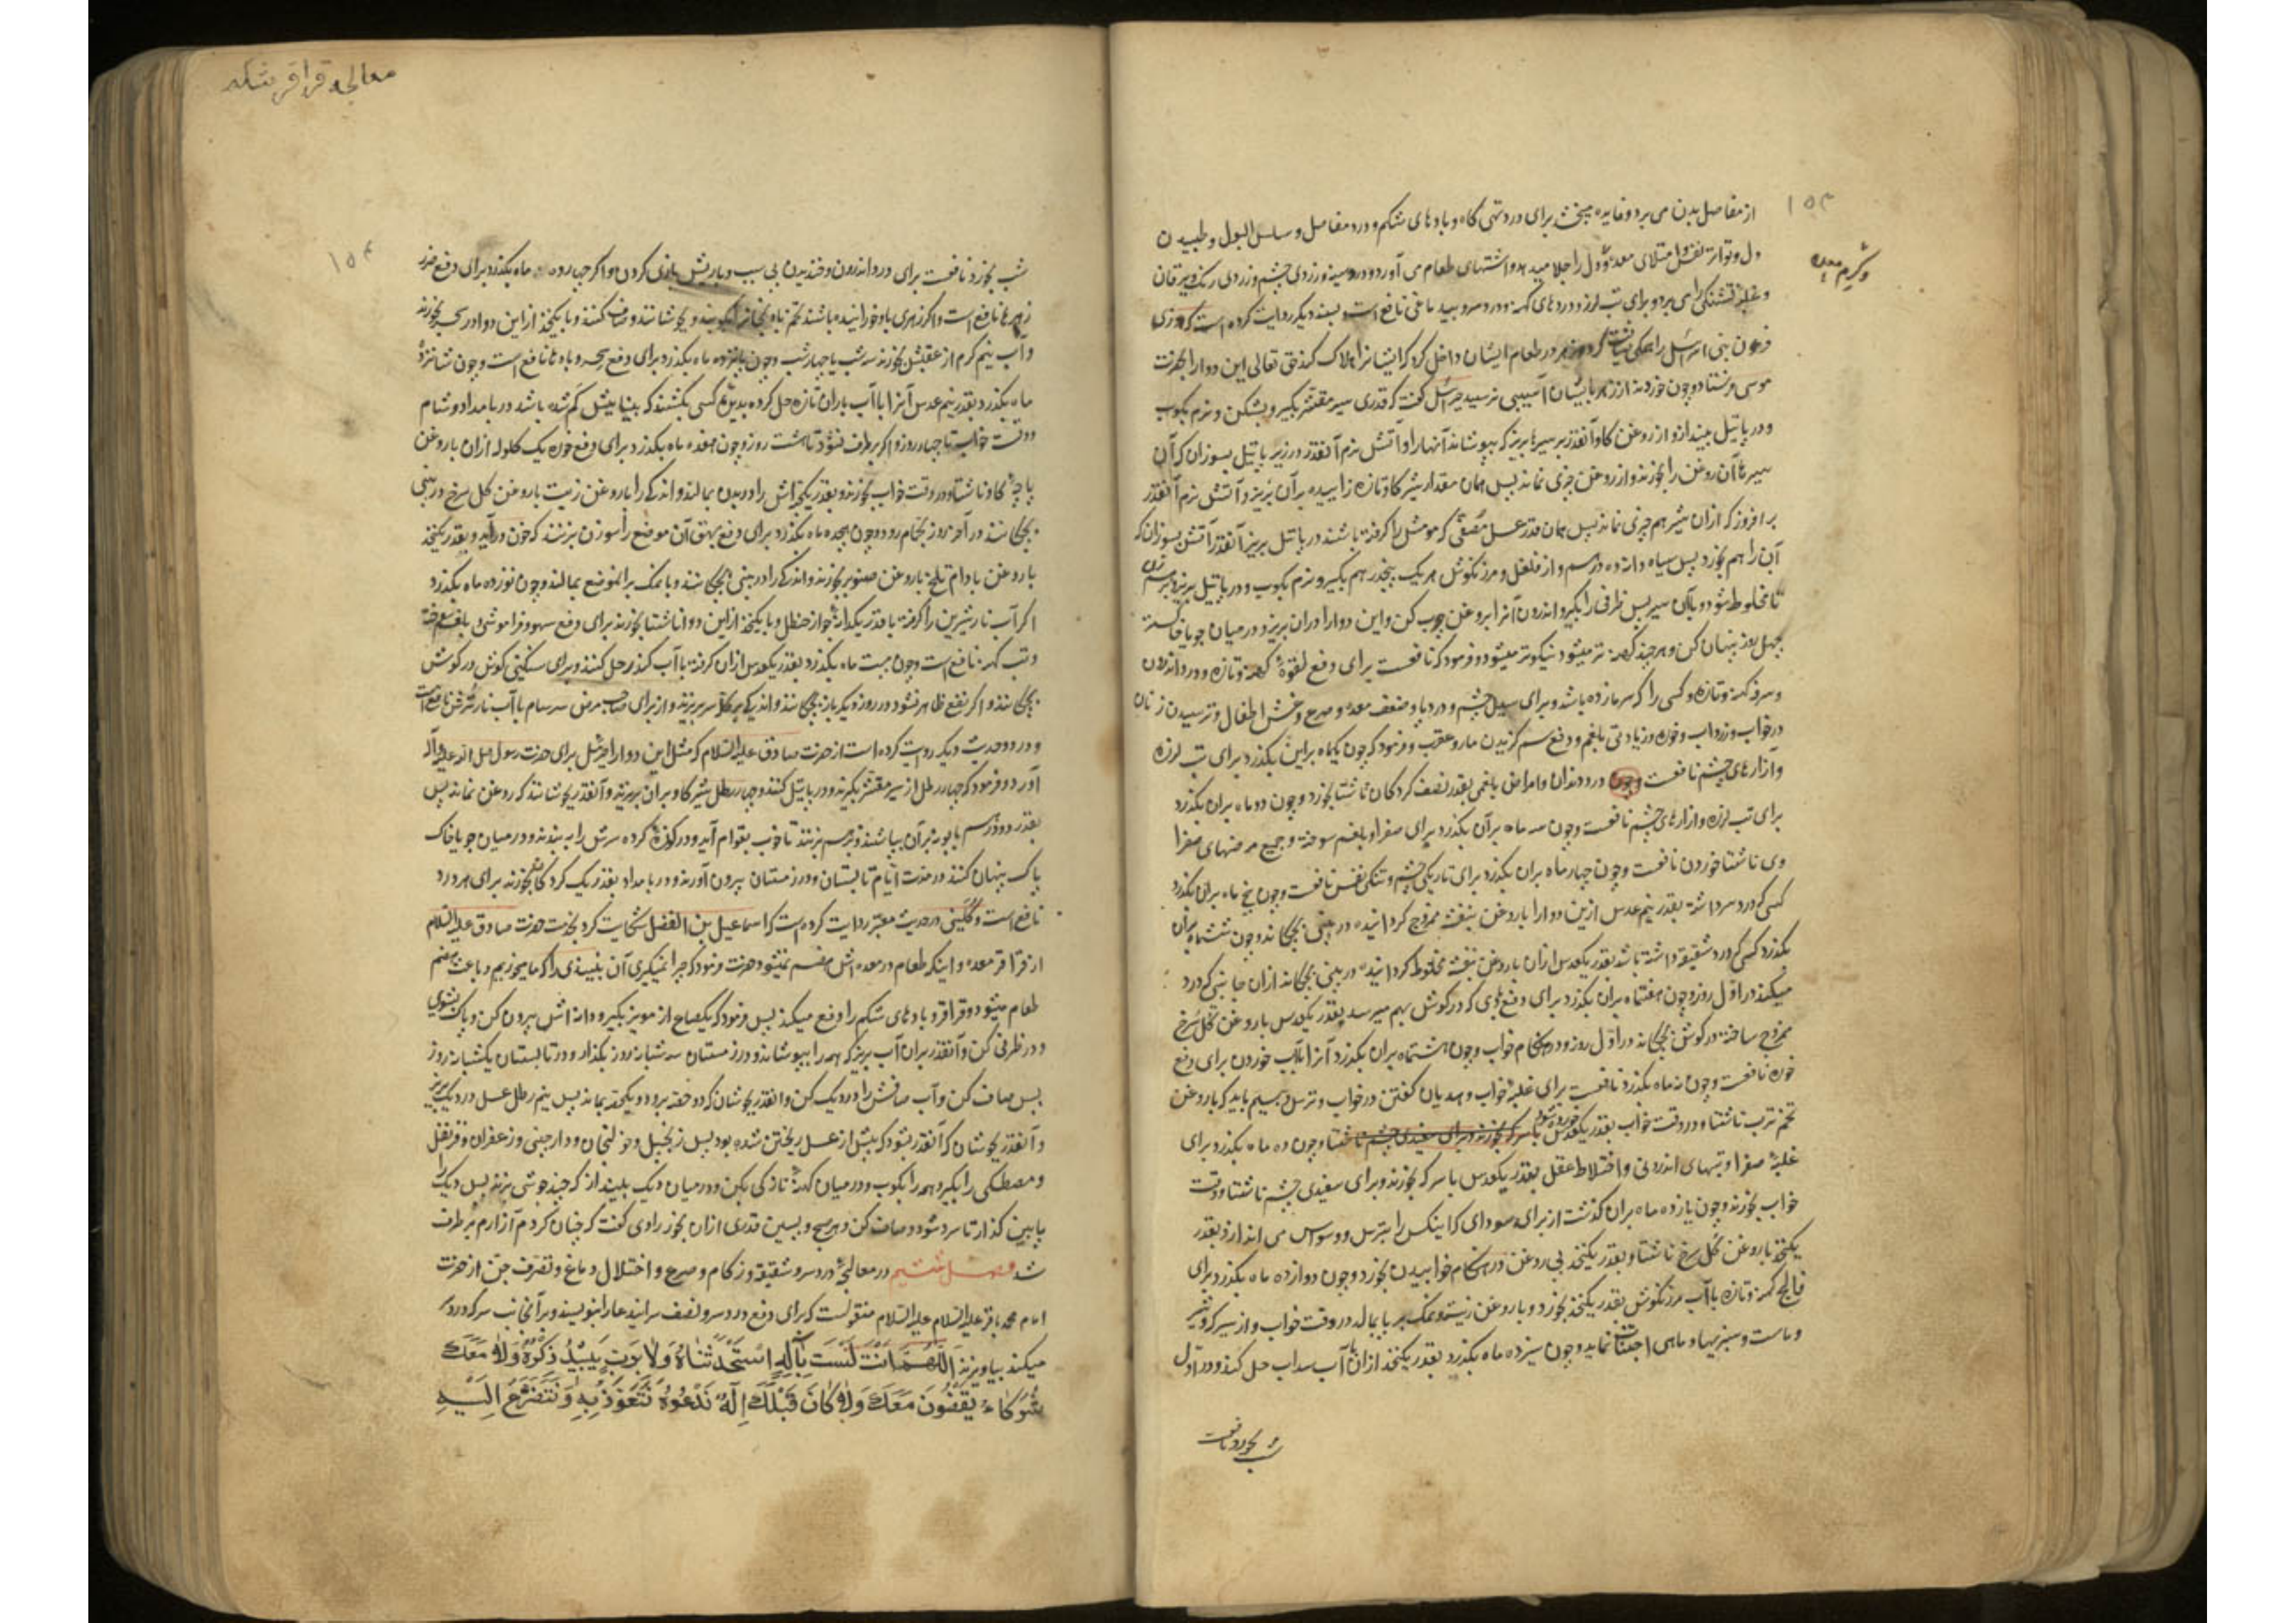 ۱۵۳
از مفاصل بدن می برد و فایده میبخشد برای درد تهی کاه و بادهای شکم و درد مفاصل و سلس البول و طپیدن
دل و تواتر نفس و امتلای معده و دل را جلا میدهد و اشتهای طعام می آورد و درد سینه و زردی چشم و زردی رنک و یرقان
و کرم معده
و غلبه تشنکی را می برد و برای تب لرز و دردهای کهنه و درد سر و بسند دیکر روایت کرده است که روزی
فرعون بنی اسرائیل را همکی ضیافت کرد و زهر در طعام ایشان داخل کرد که ایشانرا هلاک کند حق تعالی این دوا را بحضرت
موسی فرستاد و چون خوردند از زهر بایشان آسیبی نرسید جبرئیل کفت که قدری سیر مقشر بکیر و بشکن و نرم بکوب
و در پاتیل بینداز و از روغن کاو آنقدر بر سیرها بریز که بپوشاند آنها را و آتش نرم آنقدر در زیر پاتیل بسوزان که آن
سیرها آن روغن را بخورند و از روغن چیزی نماند پس همان مقدار شیر کاو تازه زاییده بر آن بریز و آتش نرم آنقدر
برافروز که از ان شیر هم چیزی نماند پس همان قدر عسل مصفی که مومش را کرفته باشند در پاتیل بریز آنقدر آتش بسوزان که
آن را هم بخورد پس سیاه دانه ده درهم و از فلفل و مرزنکوش هر یک پنجدرهم بکیر و نرم بکوب و در پاتیل بریز و برهم زن
تا مخلوط شود با آن سیر پس ظرفی را بکیر و اندرون آنرا بروغن چرب کن و این دوا را در ان بریز و در میان جو یا خاکستر
چهل روز پنهان کن و هر چند کهنه تر میشود نیکوتر میشود و فرمود که نافعست برای دفع لقوهٔ کهنه و تازه و درد اندرون
و سرفه کهنه و تازه و کسی را که سرما زده باشد و برای سبل چشم و درد پا و ضعف معده و صرع و غش اطفال و ترسیدن زنان
در خواب و زرداب و خوره و زیادتی بلغم و دفع سم کزیدن مار و عقرب و فرمود که چون یکماه بر این بکذرد برای تب لرزه
و آزارهای چشم نافعست و چون درد دندان و امراض بلغمی بقدر نصف کردکان ناشتا بخورد و چون دو ماه بران بکذرد
برای تب لرزه و ازارهای چشم نافعست و چون سه ماه بر آن بکذرد برای صفرا و بلغم سوخته و جمیع مرضهای صفرا
وی ناشتا خوردن نافعست و چون چهار ماه بران بکذرد برای تاریکی چشم و تنکی نفس نافعست و چون پنج ماه بران بکذرد
کسی که درد سر داشته بقدر نیم عدس ازین دوا را با روغن بنفشه ممزوج کردانیده در بینی بچکاند و چون ششماه بران
بکذرد کسی که درد شقیقه داشته باشد بقدر یکعدس از ان با روغن بنفشه مخلوط کردانیده در بینی بچکاند از ان جانبی که درد
میکند در اول روز و چون هفتماه بران بکذرد برای دفع بادی که در کوش بهم میرسد بقدر یکعدس با روغن کل سرخ
ممزوج ساخته در کوش بچکاند در اول روز و در هنکام خواب و چون هشتماه بران بکذرد آنرا با آب خوردن برای دفع
خوره نافعست و چون نه ماه بکذرد نافعست برای غلبه خواب و هذیان کفتن در خواب و ترس و بیم باید که با روغن
تخم ترب ناشتا و در وقت خواب بقدر یکعدس خورده شود و چون ده ماه بکذرد برای
غلبهٔ صفرا و تبهای اندرونی و اختلاط عقل بقدر یکعدس با سرکه بخورند و برای سفیدی چشم ناشتا و وقت
خواب بخورند و چون یازده ماه بران کذشت از برای سودای که اینکس را بترس و وسواس می اندازد بقدر
یکنخود با روغن کل سرخ ناشتا و بقدر یکنخود بی روغن در هنکام خوابیدن بخورد و چون دوازده ماه بکذرد برای
فالج کهنه و تازه با آب مرزنکوش بقدر یکنخود بخورد و با روغن زیت و نمک بر پا بمالد در وقت خواب و از سرکه و شیر
و ماست و سبزیها و ماهی اجتناب نماید و چون سیزده ماه بکذرد بقدر یکنخود از ان با آب سداب حل کند و در اول
شب بخورد نافعست
معالجه قراقر شکم
۱۵۴
شب بخورد نافعست برای درد اندرون و خندیدن بی سبب و با ریش بازی کردن و اکر چهارده ماه بکذرد برای دفع ضرر
زهرها نافع است و اکر زهری باو خورانیده باشند تخم بادنجانرا بکوبند و بجوشانند و صاف کنند و با یکنخود از این دوا در سحر بخورند
و آب نیم کرم از عقبش بخورند سه شب یا چهار شب و چون پانزده ماه بکذرد برای دفع سحر و بادها نافع است و چون شانزده
ماه بکذرد بقدر نیم عدس آنرا با آب باران تازه حل کرده بدیدهٔ کسی بکشند که بیناییش کم شده باشد در بامداد و شام
و وقت خواب تا چهار روز و اکر برطرف نشود تا هشت روز و چون هفده ماه بکذرد برای دفع خوره یک کلوله ازان با روغن
پاچه کاو ناشتا و در وقت خواب بخورند و بقدر یکنخودش را در بدن بمالند و اندکی را با روغن زیت یا روغن کل سرخ در بینی
بچکانند در آخر روز بحمام رود و چون هیجده ماه بکذرد برای دفع بهق آن موضع را سوزن بزنند که خون درآید و بقدر یکنخود
با روغن بادام تلخ یا روغن صنوبر بخورند و اندکی را در بینی بچکانند و با نمک بر انموضع بمالند و چون نوزده ماه بکذرد
اکر آب نار شیرین را کرفته با قدر یکدانه جو از حنظل و با یکنخود از این دوا ناشتا بخورند برای دفع سهو و فراموشی و بلغم سوخته
و تب کهنه نافع است و چون بیست ماه بکذرد بقدر یکعدس ازان کرفته با آب کندر حل کنند و برای سنکینی کوش در کوش
بچکانند و اکر نفع ظاهر نشود در روز دیکر باز بچکانند و اندکی بر کله سر بریزند و از برای صاحب مرض سرسام با آب نار ترش نافع است
و در دو حدیث دیکر روایت کرده است از حضرت صادق علیه السلام که مثل این دوا را جبرئیل برای حضرت رسول صلی الله علیه و آله
آورد و فرمود که چهار رطل از سیر مقشر بکیرند و در پاتیل کنند و چهار رطل شیر کاو بران بریزند و آنقدر بجوشانند که روغن نماند پس
بقدر دو درهم بابونه بر آن بپاشند و برهم زنند تا خوب بقوام آید و در کوزهٔ کرده سرش را به بندند و در میان جو یا خاک
پاک پنهان کنند در مدت ایام تابستان و در زمستان بیرون آورند و در بامداد بقدر یک کردکان بخورند برای هر درد
نافع است و کلینی در حدیث معتبر روایت کرده است که اسماعیل بن الفضل شکایت کرد بخدمت حضرت صادق علیه السلام
از قراقر معده و اینکه طعام در معده اش هضم نمیشود حضرت فرمود که چرا نمیکیری آن نبیذی را که ما میخوریم و باعث هضم
طعام میشود و قراقر و بادهای شکم را دفع میکند پس فرمود که یکصاع از مویز بکیر و دانه اش بیرون کن و پاک بشوی
و در ظرفی کن و آنقدر بران آب بریز که همه را بپوشاند و در زمستان سه شبانه روز بکذار و در تابستان یکشبانه روز
پس صاف کن و آب صافش را در دیک کن و انقدر بجوشان که دو حصه برود و یکحصه بماند پس نیم رطل عسل در دیک بریز
و آنقدر بجوشان که آنقدر بشود که پیش از عسل ریختن شده بود پس زنجبیل و خولنجان و دارچینی و زعفران و قرنفل
و مصطکی را بکیر و همه را بکوب و در میان کهنهٔ نازکی بکن و در میان دیک بینداز که چند جوشی بزند پس دیک را
پایین کذار تا سرد شود و صاف کن و هر صبح و پسین قدری ازان بخور راوی کفت که چنان کردم آزارم برطرف
شد فصل ششم در معالجهٔ درد سر و شقیقه و زکام و صرع و اختلال دماغ و تصرف جن از حضرت
امام محمد باقر علیه السلام علیه السلام منقولست که برای دفع درد سر و نصف سر ایندعا را بنویسند و بر آنجانب سر که درد
میکند بیاویزند اَللّٰهُمَّ اِنَّكَ لَسْتَ بِاِلٰهٍ اسْتَحْدَثْنَاهُ وَلَا بِرَبٍّ يَبِيدُ ذِكْرُهُ وَلَا مَعَكَ
شُرَكَاءُ يَقْضُونَ مَعَكَ وَلَا كَانَ قَبْلَكَ اِلٰهٌ نَدْعُوهُ نَتَعَوَّذُ بِهِ وَنَتَضَرَّعُ اِلَيْهِ